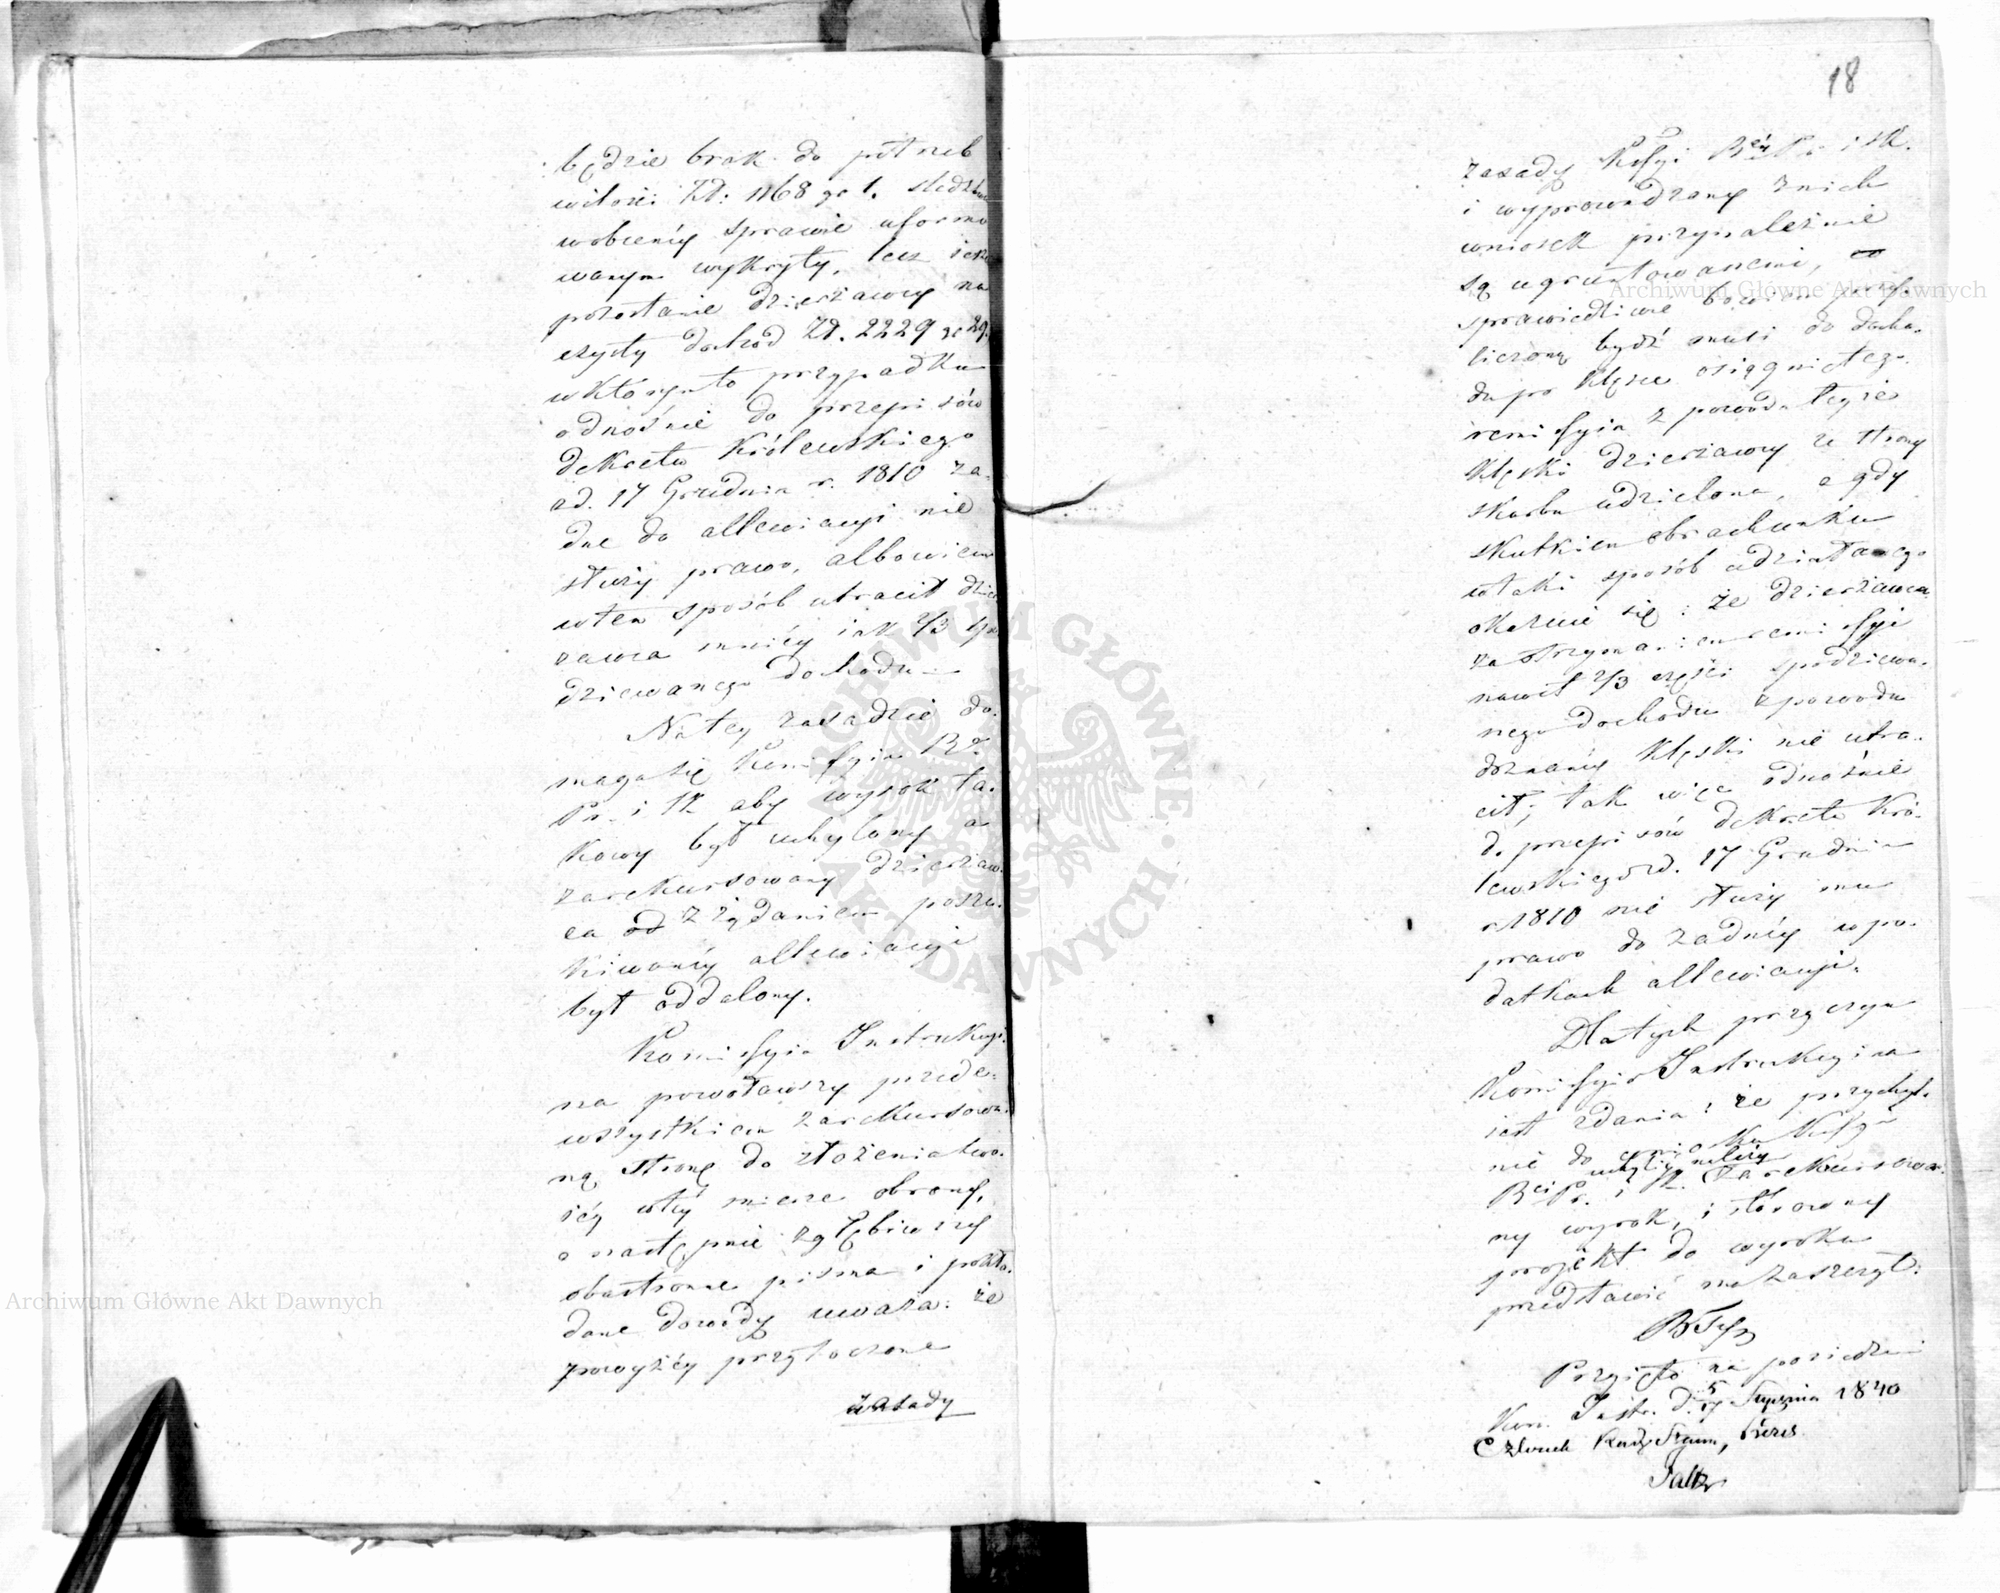 będzie brak do potrzeb
w ilości Zł: 1168 gr 1. śledztwem
w obecnéy sprawie uformo
wanym wykryty, lecz ieszcze
pozostanie dzierżawcy na
czysty dochód Zł. 2229 gr 29.
w którymto przypadku
odnośnie do przepisów
dekretu Królewskiego
z d. 17 Grudnia r. 1810 ża-
dne do allewiacyi nie
służy prawo, albowiem
w ten sposób utracił dzier
żawca mniéy iak 2/3 spo
dziewanego dochodu —
Na tey zasadzie do-
maga się Kommissyia Rz.
Pr. i Sk. aby wyrok ta-
kowy był uchylony a
zarekursowany dzierżaw-
ca od z żądaniem poszu-
kiwanéy allewiacyi
był oddalony.
Kommissyia Instrukcyi-
na powoławszy przede-
wszystkiem zarekursowa-
ną stronę do złożenia swo-
iéy w téy mierze obrony,
a następnie zgłębiwszy
obustronne pisma i pokła-
dane dowody uważa: że
powyżéy przytoczone
zasady
18
zasady Kssyi Rzéy Pr. i Sk.
i wyprowadzony z nich
wniosek przynależnie
są ugruntowanemi, co
sprawiedliwie bowiem
liczoną bydź musi do docho-
du po klęsce osiągniętego
remissyia z powodu teyże
klęski dzierżawcy ze strony
skarbu udzielona, a gdy
skutkiem obrachunku
w taki sposób udziałanego
okazuie się: że dzierżawca
za otrzymaniem remissyi
nawet 2/3 części spodziewa-
nego dochodu z powodu
doznanéy klęski nie utra-
cił, tak więc odnośnie
do przepisów dekretu Kró-
lewskiego z d. 17 Grudnia
r. 1810 nie służy mu
prawo do żadnéy w po-
datkach allewiacyi.
Dla tych przyczyn
Kommissyia Instrukcyina
iest zdania: że przychyl-
nie do wniosku Kssyi
uchylić należy
Rzéi Pr. i Sk. zarekursowa-
ny wyrok, i stosowny
projekt do wyroku
przedstawić ma zaszczyt.
Przyięto na posiedzeniu
Kom. Instr. d. 5/17 Stycznia 1840
Członek Rady Stanu, Prezes